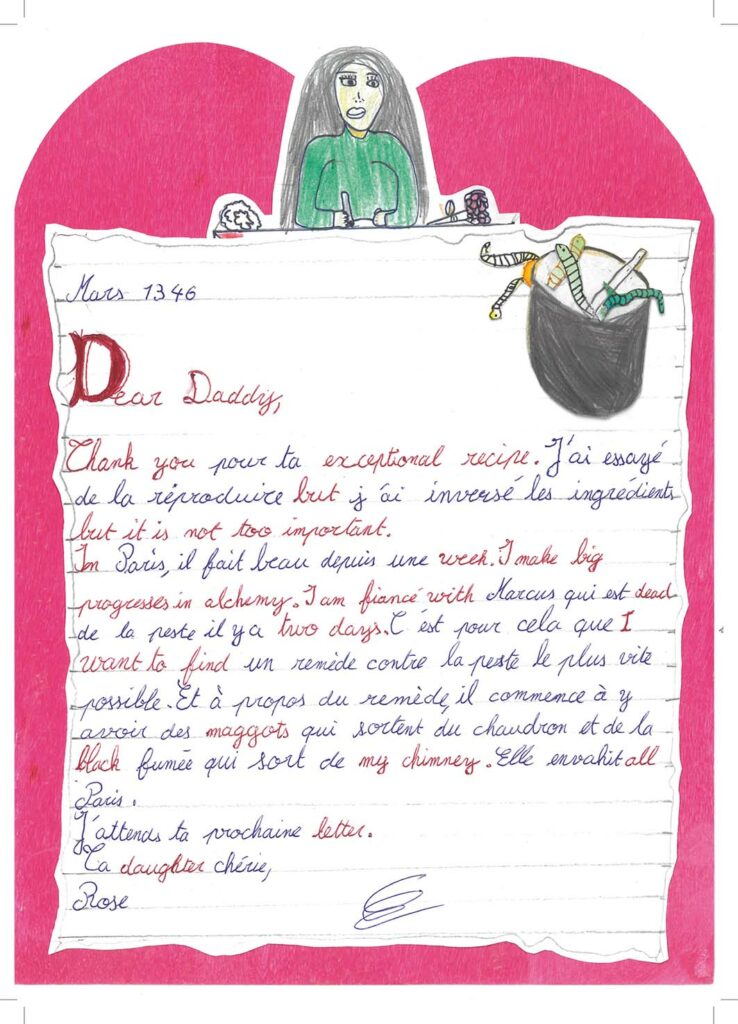 Mars 1346
Dear Daddy,
Thank you pour ta exceptional recipe. J'ai essayé
de la réproduire but j'ai inversé les ingrédients
but it is not too important.
In Paris, il fait beau depuis une week. I make big
progresses in alchemy. I am fiancé with Marcus qui est dead
de la peste il y a two days. C'est pour cela que I
want to find un remède contre la peste le plus vite
possible. Et à propos du remède, il commence à y
avoir des maggots qui sortent du chaudron et de la
black fumée qui sort de my chimney. Elle envahit all
Paris.
J'attends ta prochaine letter.
Ta daughter chérie,
Rose